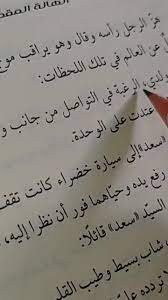 الهالة المقد
هز الرجل رأسه وقال وهو يراقب موج
عن العالم في تلك اللحظات:
الرغبة في التواصل من جانب و
عتدت على الوحدة.
«سعد» إلى سيارة خضراء كانت تقف
رفع يده وحيّاهما فور أن نظرا إليه،
السيّد «سعد» قائلًا:
بسيط وطيب القلب